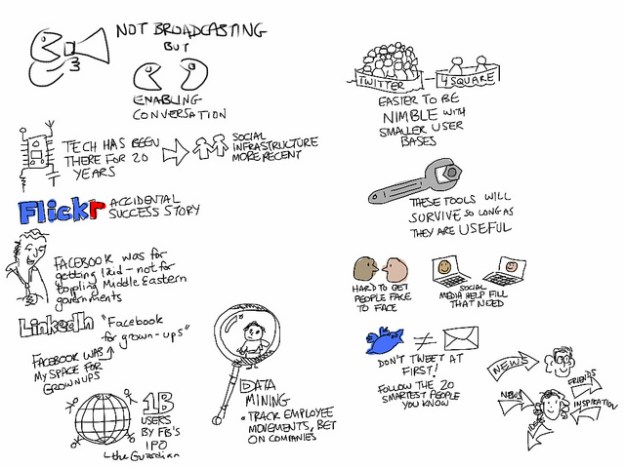 NOT BROADCASTING
BUT
ENABLING
CONVERSATION
TECH HAS BEEN
THERE FOR 20
YEARS
SOCIAL
INFRASTRUCTURE
MORE RECENT
Flickr
ACCIDENTAL
SUCCESS STORY
FACEBOOK was for
getting laid - not for
toppling Middle Eastern
governments
LinkedIn
"Facebook
for grown-ups"
FACEBOOK WAS
MY SPACE FOR
GROWNUPS
1B
USERS
BY FB'S
IPO
-the Guardian
DATA
MINING
• TRACK EMPLOYEE
MOVEMENTS, BET
ON COMPANIES
TWITTER
4 SQUARE
EASIER TO BE
NIMBLE WITH
SMALLER USER
BASES
THESE TOOLS WILL
SURVIVE SO LONG AS
THEY ARE USEFUL
HARD TO GET
PEOPLE FACE
TO FACE
SOCIAL
MEDIA HELP FILL
THAT NEED
≠
DON'T TWEET AT
FIRST!
FOLLOW THE 20
SMARTEST PEOPLE
YOU KNOW
NEWS
FRIENDS
NEWS
INSPIRATION